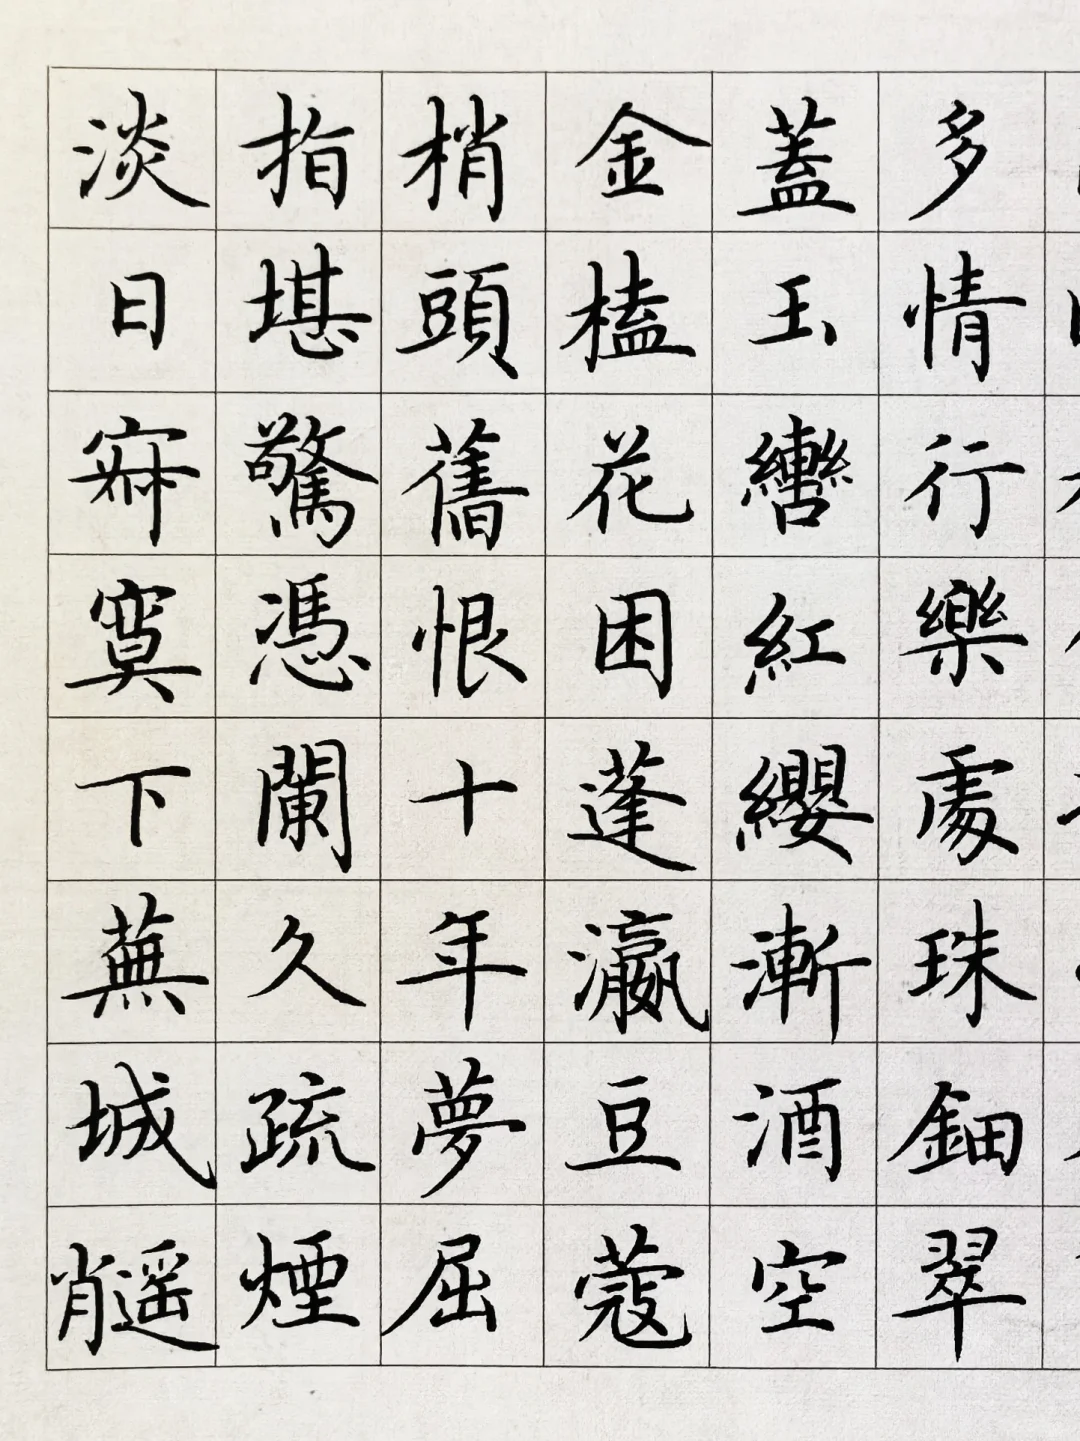 多情行樂處珠鈿翠
蓋玉轡紅纓漸酒空
金榼花困蓬瀛豆蔻
梢頭舊恨十年夢屈
指堪驚憑闌久疏煙
淡日寂寞下蕪城肖遥